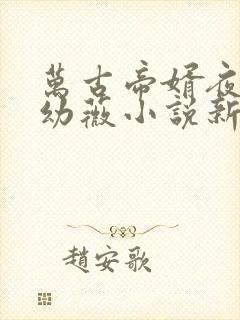 萬古帝婿夜
幼薇小説新
趙安歌